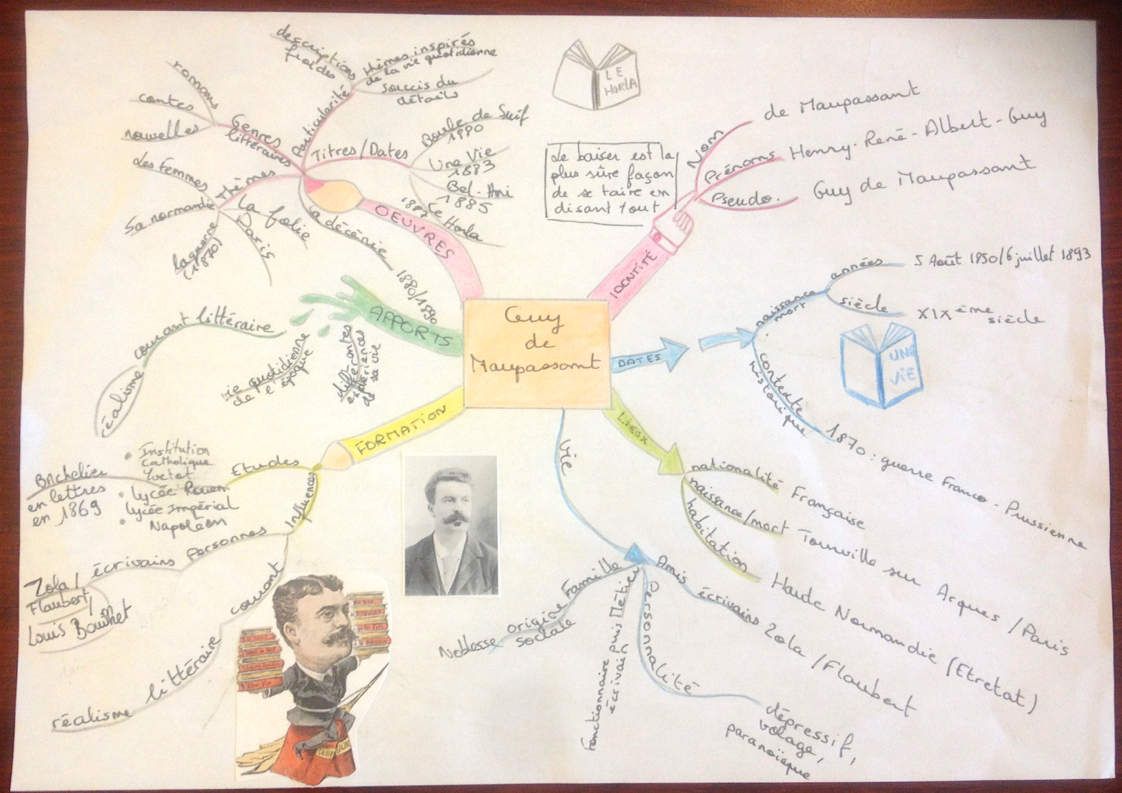 Guy
de
Maupassant
IDENTITÉ
Nom
de Maupassant
Prénoms
Henry-René-Albert-Guy
Pseudo.
Guy de Maupassant
Le baiser est la
plus sûre façon
de se taire en
disant tout
LE
HORLA
DATES
naissance
mort
années
5 Août 1850/6 juillet 1893
siècle
XIXème
siècle
contexte
historique
1870 : guerre Franco-Prussienne
UNE
VIE
LIEUX
nationalité Française
naissance/mort Tourville sur Arques/Paris
habitation Haute Normandie (Etretat)
Vie
Amis écrivains Zola/Flaubert
Personnalité
dépressif,
volage,
paranoïaque
Métier
Fonctionnaire puis
écrivain
Famille
origine
sociale
Noblesse
FORMATION
Etudes
• Institution
Catholique
Yvetot
• Lycée Rouen
• lycée Impérial
Napoléon
Bachelier
en lettres
en 1869
Influences
Personnes
écrivains
Zola/
Flaubert/
Louis Bouilhet
courant
littéraire
réalisme
APPORTS
courant littéraire
réalisme
vie quotidienne
de l'époque
différentes
expériences
de sa vie
OEUVRES
Titres/Dates
Boule de Suif
1880
Une Vie
1883
Bel-Ami
1885
Le Horla
1887
particularité
descriptions
froides
thèmes inspirés
de la vie quotidienne
soucis du
détails
Genres
littéraires
romans
contes
nouvelles
Thèmes
Les Femmes
Sa normandie
la guerre
(1870)
Paris
la folie
la décénie
1880/1890